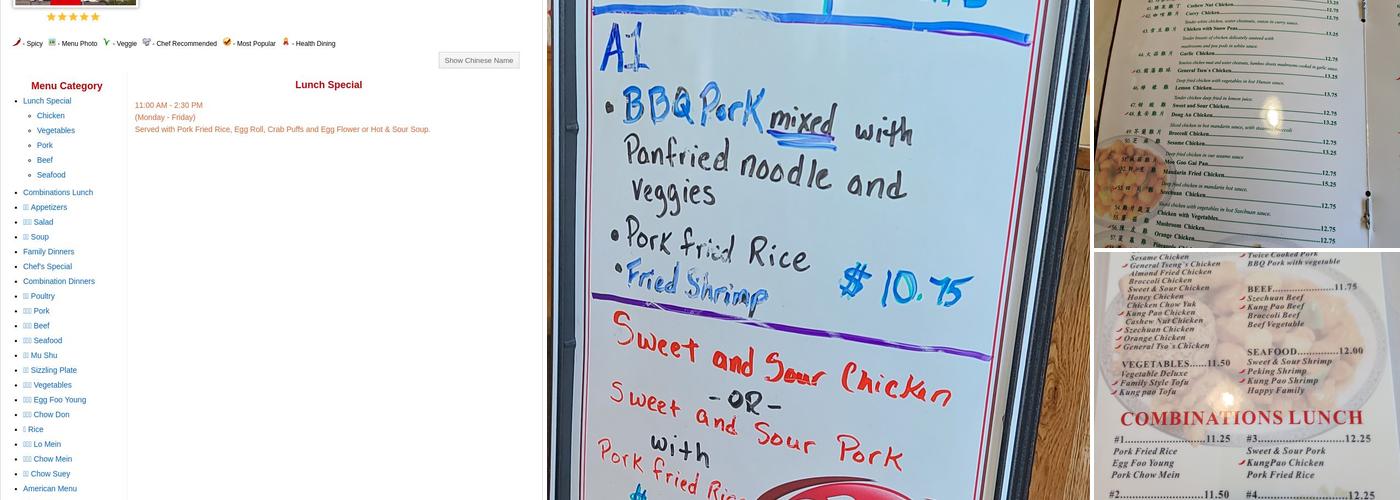 - Spicy - Menu Photo - Veggie - Chef Recommended - Most Popular - Health Dining
Show Chinese Name
Menu Category
Lunch Special
Chicken
Vegetables
Pork
Beef
Seafood
Combinations Lunch
Appetizers
Salad
Soup
Family Dinners
Chef's Special
Combination Dinners
Poultry
Pork
Beef
Seafood
Mu Shu
Sizzling Plate
Vegetables
Egg Foo Young
Chow Don
Rice
Lo Mein
Chow Mein
Chow Suey
American Menu
Lunch Special
11:00 AM - 2:30 PM
(Monday - Friday)
Served with Pork Fried Rice, Egg Roll, Crab Puffs and Egg Flower or Hot & Sour Soup.
A1
• BBQ Pork mixed with
Panfried noodle and
veggies
• Pork fried Rice
• Fried Shrimp $10.75
Sweet and Sour Chicken
-OR-
Sweet and Sour Pork
with
Pork fried Rice
$
Cashew Nut Chicken 13.25
Curry Chicken 12.75
Tender white chicken, water chestnuts, onion in curry sauce.
Chicken with Snow Peas 13.25
Tender breasts of chicken delicately sauteed with
mushrooms and pea pods in white sauce.
Garlic Chicken 12.75
General Tsou's Chicken 13.25
Deep fried chicken with vegetables in hot Hunan sauce.
Lemon Chicken 12.75
Tender chicken deep fried in lemon juice.
Sweet and Sour Chicken 12.75
Dong An Chicken 13.25
Broccoli Chicken 12.75
Sesame Chicken 13.25
Deep fried chicken in our sesame sauce
Moo Goo Gai Pan 12.75
Mandarin Fried Chicken 15.25
Deep fried chicken in mandarin hot sauce.
Szechuan Chicken 12.75
Sliced chicken with vegetables in hot Szechuan sauce.
Chicken with Vegetables 12.75
Mushroom Chicken 12.75
Orange Chicken
Sesame Chicken
General Tseng's Chicken
Almond Fried Chicken
Broccoli Chicken
Sweet & Sour Chicken
Honey Chicken
Chicken Chow Yuk
Kung Pao Chicken
Cashew Nut Chicken
Szechuan Chicken
Orange Chicken
General Tso's Chicken
VEGETABLES......11.50
Vegetable Deluxe
Family Style Tofu
Kung pao Tofu
Twice Cooked Pork
BBQ Pork with vegetable
BEEF......11.75
Szechuan Beef
Kung Pao Beef
Broccoli Beef
Beef Vegetable
SEAFOOD......12.00
Sweet & Sour Shrimp
Peking Shrimp
Kung Pao Shrimp
Happy Family
COMBINATIONS LUNCH
#1......11.25
Pork Fried Rice
Egg Foo Young
Pork Chow Mein
#3......12.25
Sweet & Sour Pork
KungPao Chicken
Pork Fried Rice
#2......11.50
#4......12.25